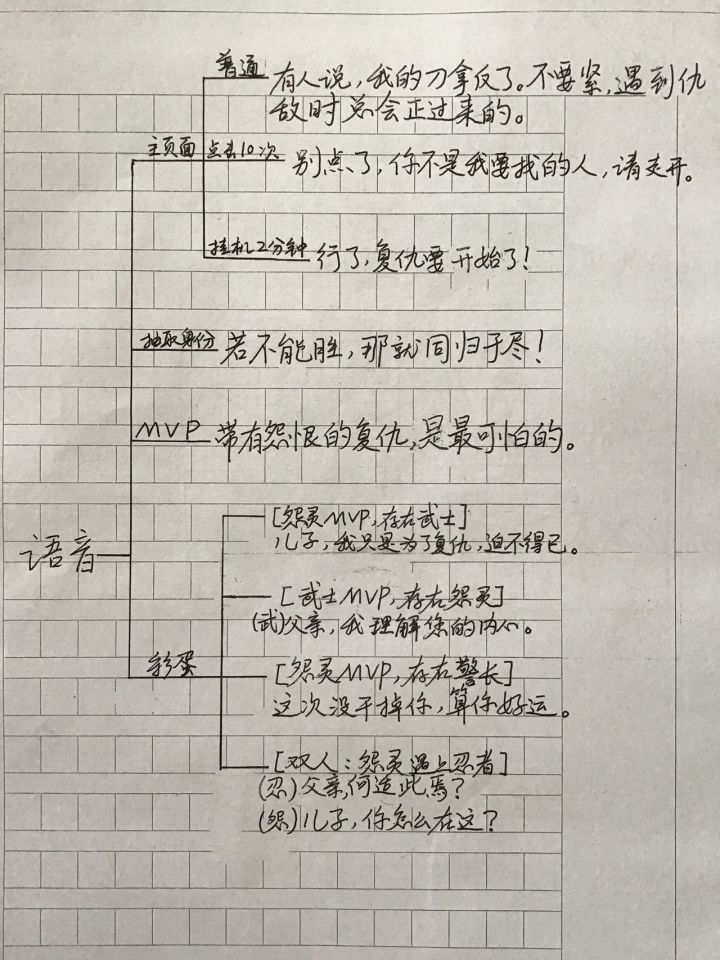 普通
有人说，我的刀拿反了。不要紧，遇到仇
敌时总会正过来的。
主页面
点击10次
别点了，你不是我要找的人，请走开。
挂机2分钟
行了，复仇要开始了！
抽取身份
若不能胜，那就同归于尽！
MVP
带有怨恨的复仇，是最可怕的。
语音
彩蛋
[怨灵MVP，存在武士]
儿子，我只是为了复仇，迫不得已。
[武士MVP，存在怨灵]
(武)父亲，我理解您的内心。
[怨灵MVP，存在警长]
这次没干掉你，算你好运。
[双人：怨灵遇上忍者]
(忍)父亲，何适此焉？
(怨)儿子，你怎么在这？